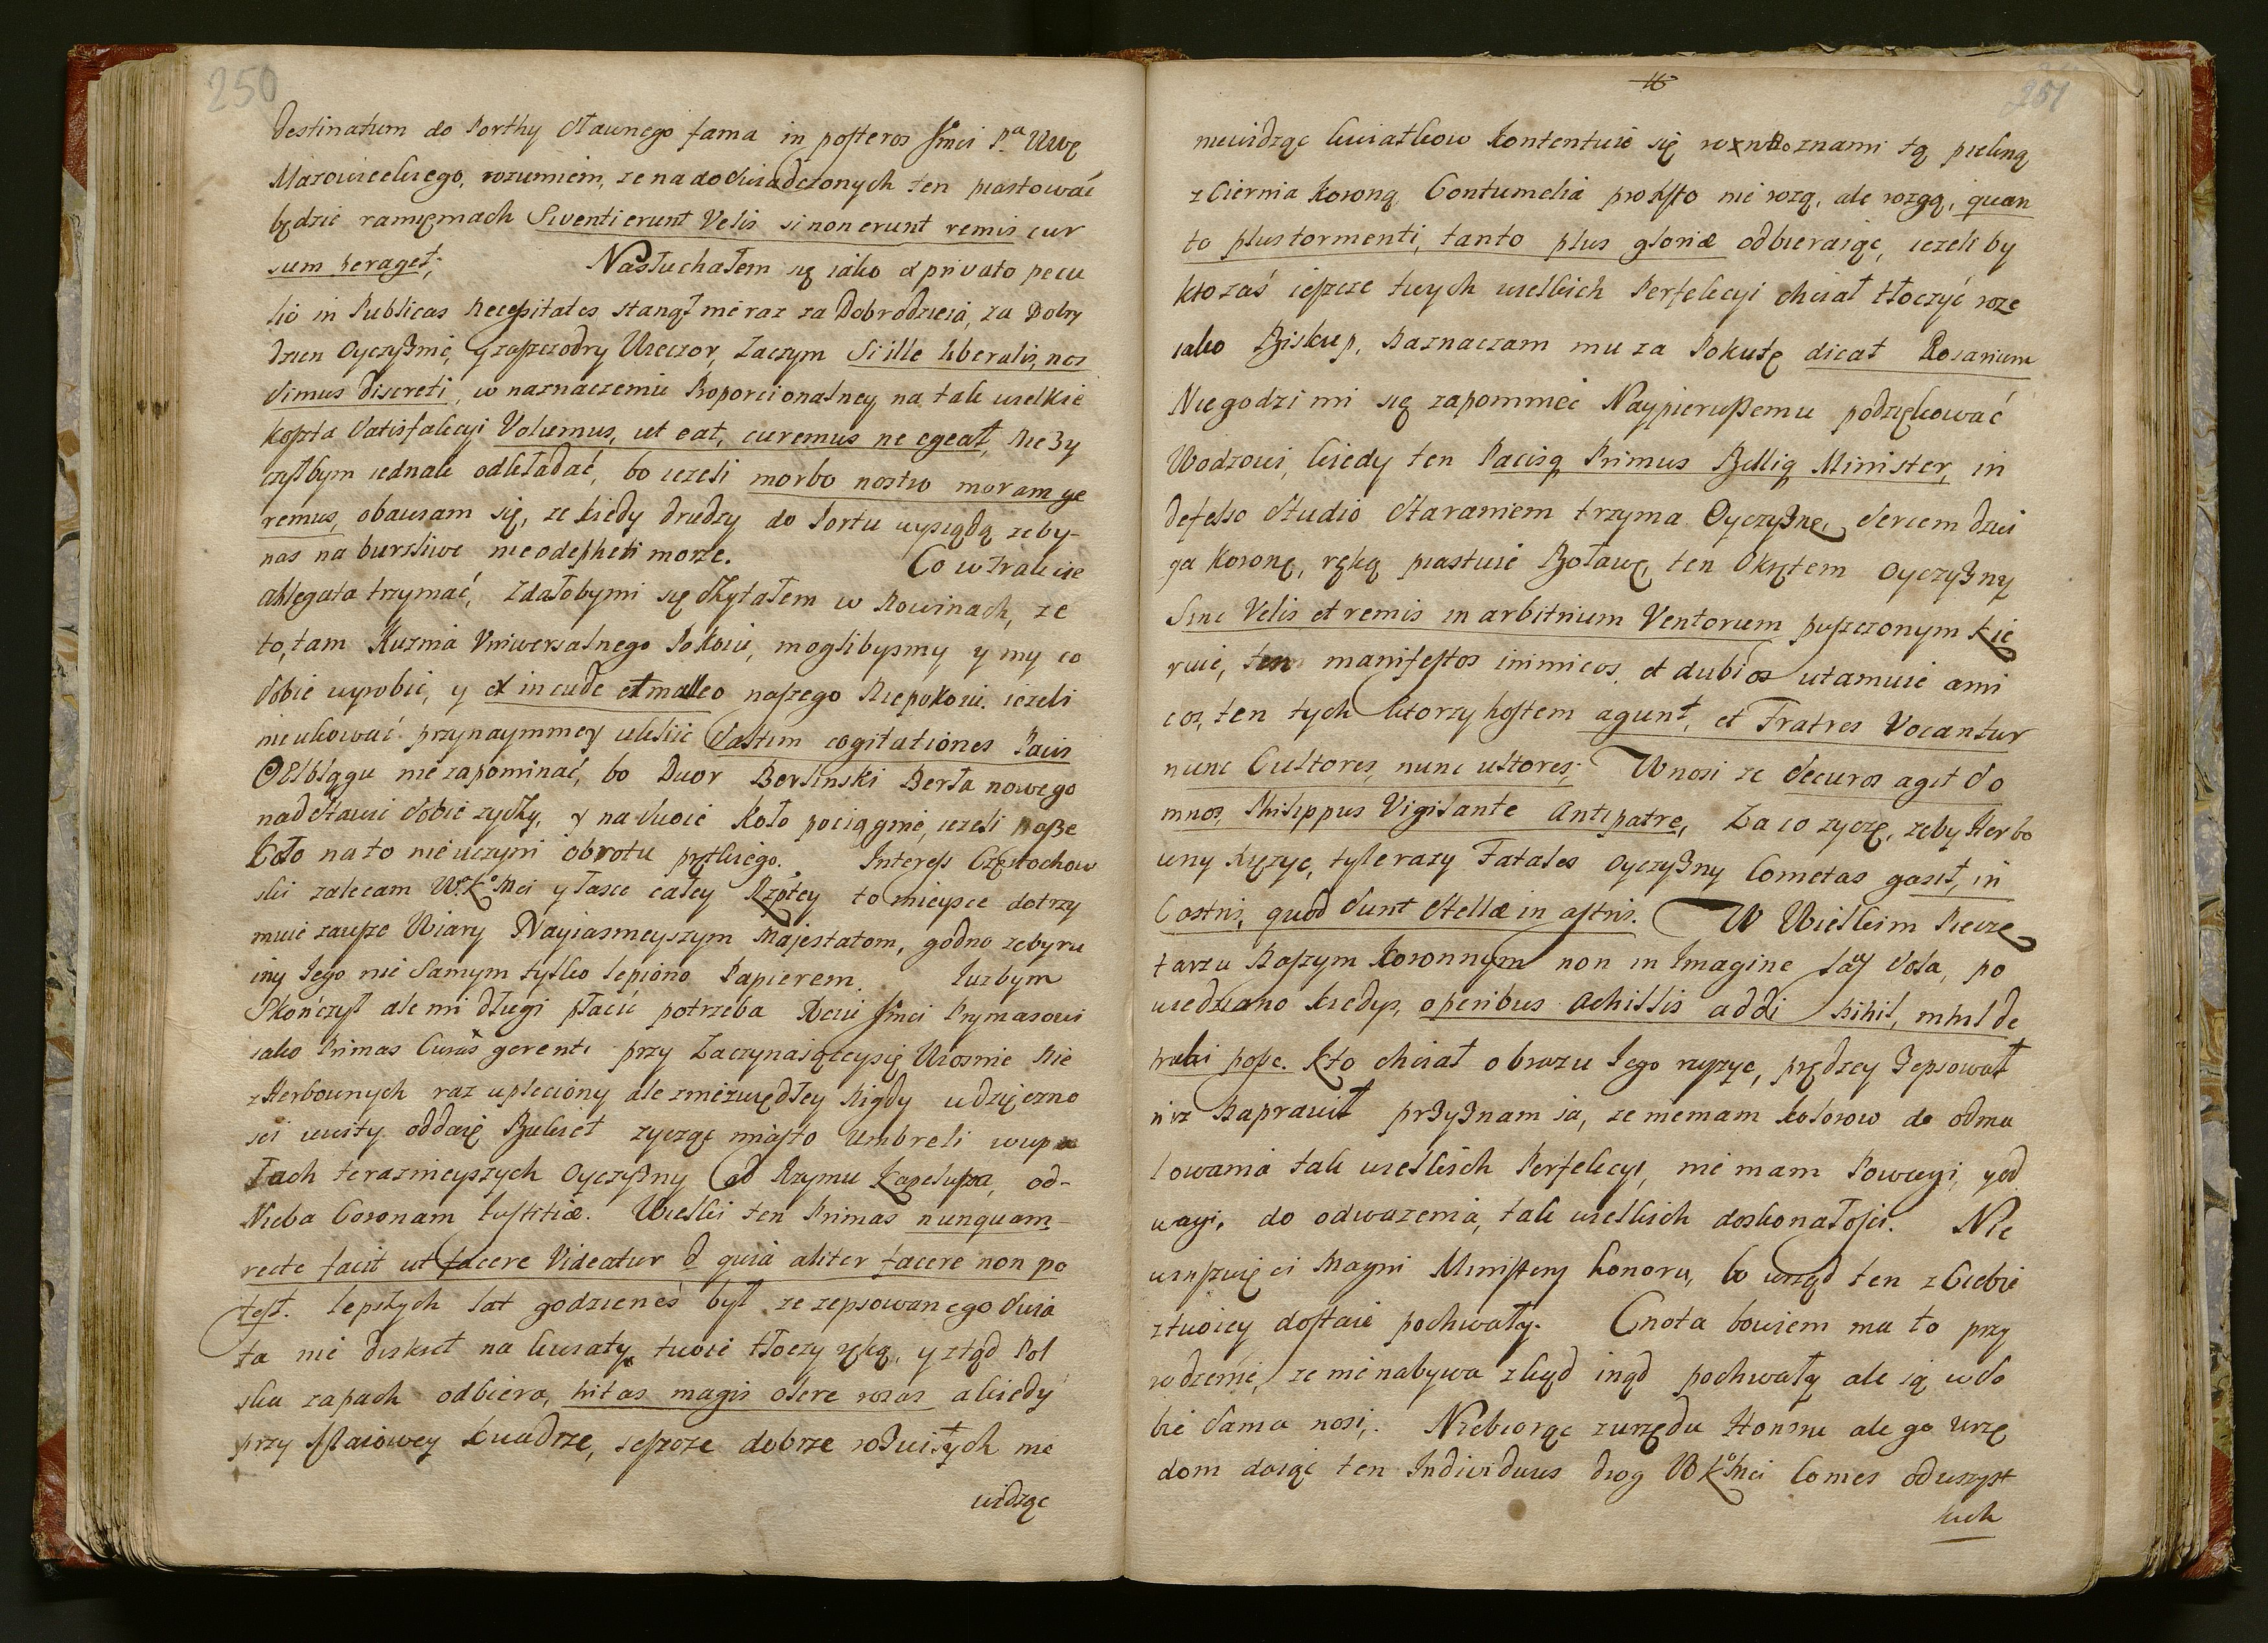 250
destinatum do Porthy sławnego fama in posteros Jmci Pa Wwę
Mazowieckiego, rozumiem, ze na doswiadczonych ten piastować
będzie ramięmach Si venti erunt Velis si non erunt remis cur
sum peraget; Nasłuchałem się iako ex privato pecu
lio in Publicas necessitates stanął nie raz za Dobrodzieia, za Dobry
dzien Oyczyznie, y zaszczodry Wieczor, Zaczym Si ille liberalis, nos
simus discreti, w naznaczeniu Proporcionalney na tak wielkie
koszta Satisfakcyi Volumus, ut eat, curemus ne egeat, nie Zy
czyłbym iednak odkładać, bo iezeli morbo nostro moram ge
remus, obawiam się, ze kiedy drudzy do Portu wysiądą zeby-
nas na burzliwe nie odepchneli morze. Co w Trakcie
ablegata trzymać, Zdałoby mi się czytałem w Nowinach, ze
to, tam Kuznia Vniwersalnego Pokoiu, moglibysmy y my co
sobie wyrobić, y ex incude et malleo naszego Niepokoiu. iezeli
nie ukować przynaymmey uklićić Saltim cogitationes Pacis
O Elblągu nie zapominać, bo Dwor Berlinski Berła nowego
nadstawić sobie zyczy, y na swoie koło pociągnie, iezeli nasze
Koło na to nie uczyni obrotu prętkiego. Interess Częstochow
ski zalecam W. K. Mci y łasce całey Rzptey to mieysce dotrzy
muie zawsze Wiary Nayiasnieyszym Majestatom, godno zeby ru
iny Jego nie Samym tylko lepiono Papierem. Juzbym
Skończył ale mi długi płacić potrzeba Xciu Jmci Prymasowi
iako Primas Curas gerenti przy Zaczynaiącey się Wiosnie Nie
z Herbownych raz upleciony ale z niezwiędłey Nigdy wdzięczno
sci uwity oddaię Bukiet zycząc miasto Umbreli w upa
łach teraznieyszych Oyczyzny od Rzymu Kapelusza, od-
Nieba Coronam Iustitiæ. Wielki ten Primas nunquam-
recte facit ut facere Videatur sed quia aliter facere non po
test. lepszych lat godzieneś był ze zepsowanego swia
ta nie diskret na kwiaty twoie tłoczy ręką, y ztąd Pol
ska zapach odbiera, tritas magis olere rosas a kiedy
przy Maiowey kwadrze, ieszcze dobrze rozwitych nie
widząc
16
251
niewidząc kwiatkow kontentuie się z nami tą piekną
z Ciernia koroną Contumelia prosto nie rozą, ale rozgą, quan
to plus tormenti, tanto plus gloriæ odbieraiąc, iezeli by
kto zaś ieszcze twych wielkich Perfekcyi chciał tłoczyć roze
iako Biskup, Naznaczam mu za Pokutę dicat Rosarium
Niegodzi mi się zapomnieć Naypierwszemu podziękować
Wodzowi, kiedy ten Pacisq Primus Belliq Minister, in
defesso Studio Staraniem trzyma Oyczyznę, Sercem dzwi
ga koronę, ręką piastuie Boławę, ten Okrętem Oyczyzny
Sine Velis et remis in arbitrium Ventorum puszczonym kie
ruie, ten manifestos inimicos, et dubios utamuie ami
cos, ten tych ktorzy hostem agunt, et Fratres Vocantur
nunc Cultores, nunc ultores; Wnosi ze Securos agit So
mnos, Philippus Vigilante Antipatre, Za co zyczę, zeby Herbo
wny Xięzyc, tyle razy Fatales Oyczyzny Cometas gasił, in
Castris, quod sunt Stellæ in astris. W Wielkim Piecze
tarzu Naszym koronnym non in Imagine laus sola, po
wiedziano kiedys, operibus Achillis addi nihil, nihil de
trahi posse. kto chciał obrazu Jego ruszyc, prędzey Zepsował
niz Naprawił przyznam ia, ze niemam kolorow do odma
lowania tak wielkich Perfekcyi, nie mam Powagi, y od
wagi, do odwazenia, tak wielkich doskonałosci. Nie
winszuię ci Magni Ministery honoru, bo urząd ten z Ciebie
z twoiey dostaie pochwały. Cnota bowiem ma to przy
rodzenie, ze nie nabywa zkąd inąd pochwały ale ią w so
bie Sama nosi. Niebiorąc z urzędu Honoru ale go urzę
dom daiąc ten Individuus drog W K. Mci Comes od wszyst
kich